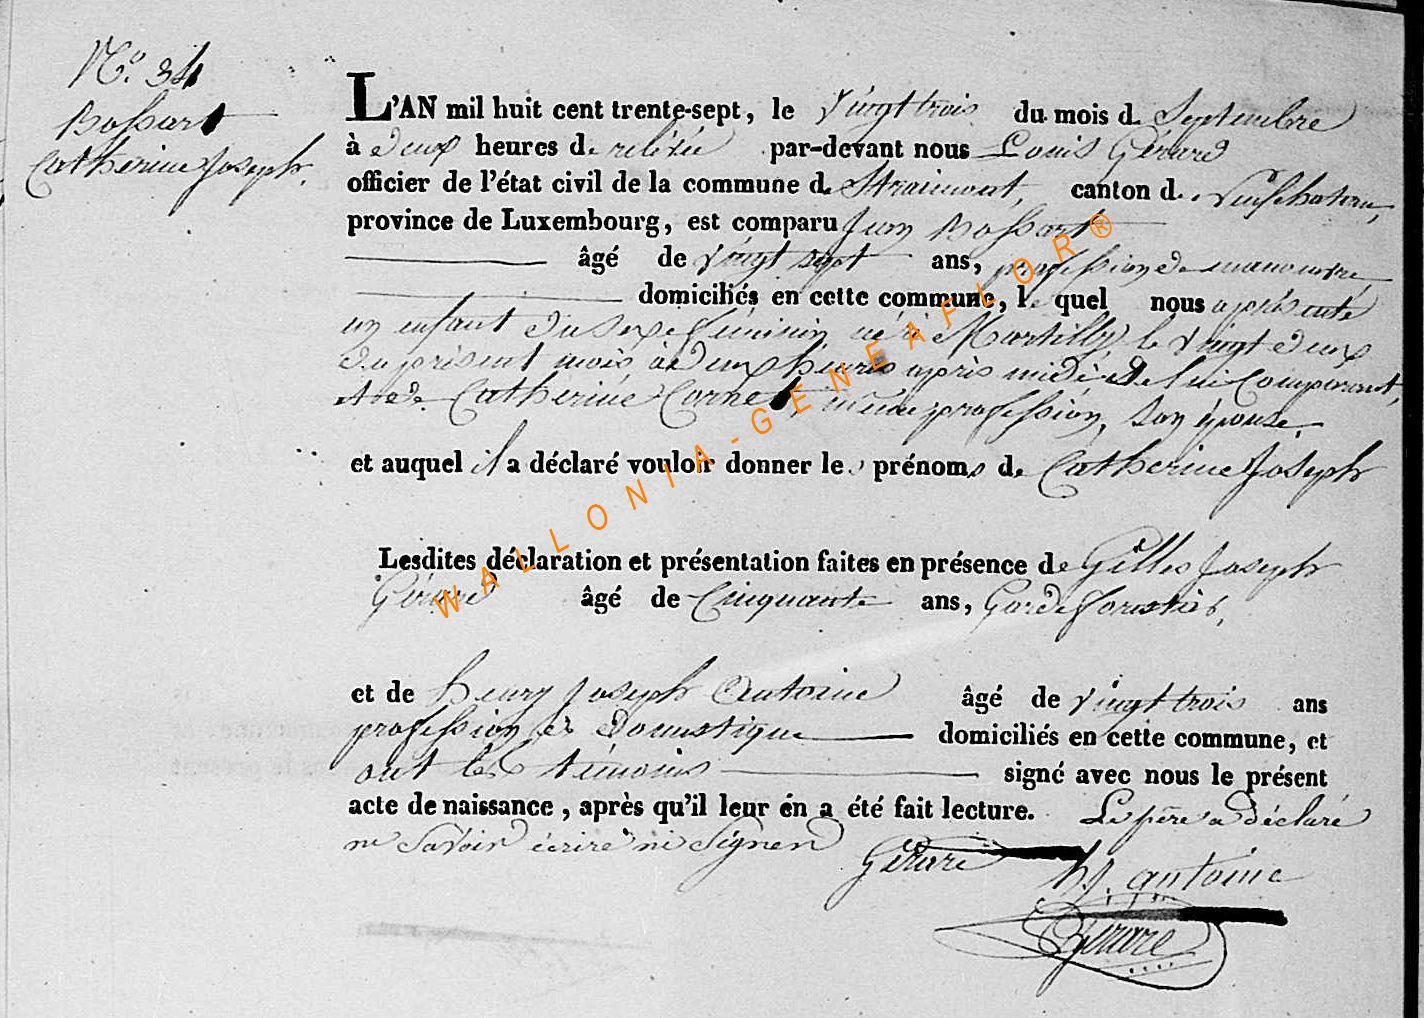 N.° 34
Bossart
Catherine Joseph.
L'AN mil huit cent trente-sept, le vingt trois du mois de Septembre
à deux heures de relevée par-devant nous Louis Gérard
officier de l'état civil de la commune de Straimont, canton de Neufchateau,
province de Luxembourg, est comparu Jean Bossart
âgé de vingt sept ans, profession de manouvre
domiciliés en cette commune, le quel nous a présenté
un enfant du sexe féminin, né à Martilly le vingt deux
du présent mois à deux heures après midi de lui Comparant,
et de Catherine Cornet, même profession, son épouse.
et auquel il a déclaré vouloir donner les prénoms de Catherine Joseph
Lesdites déclaration et présentation faites en présence de Gilles Joseph
Gérard âgé de Cinquante ans, Garde forestier,
et de henry Joseph Antoine âgé de vingt trois ans
profession de Domestique domiciliés en cette commune, et
ont les témoins signé avec nous le présent
acte de naissance, après qu'il leur en a été fait lecture. Le père a déclaré
ne savoir écrire ni signer Gérard
hJ. antoine
Gérard
WALLONIA-GENEAFLOR®